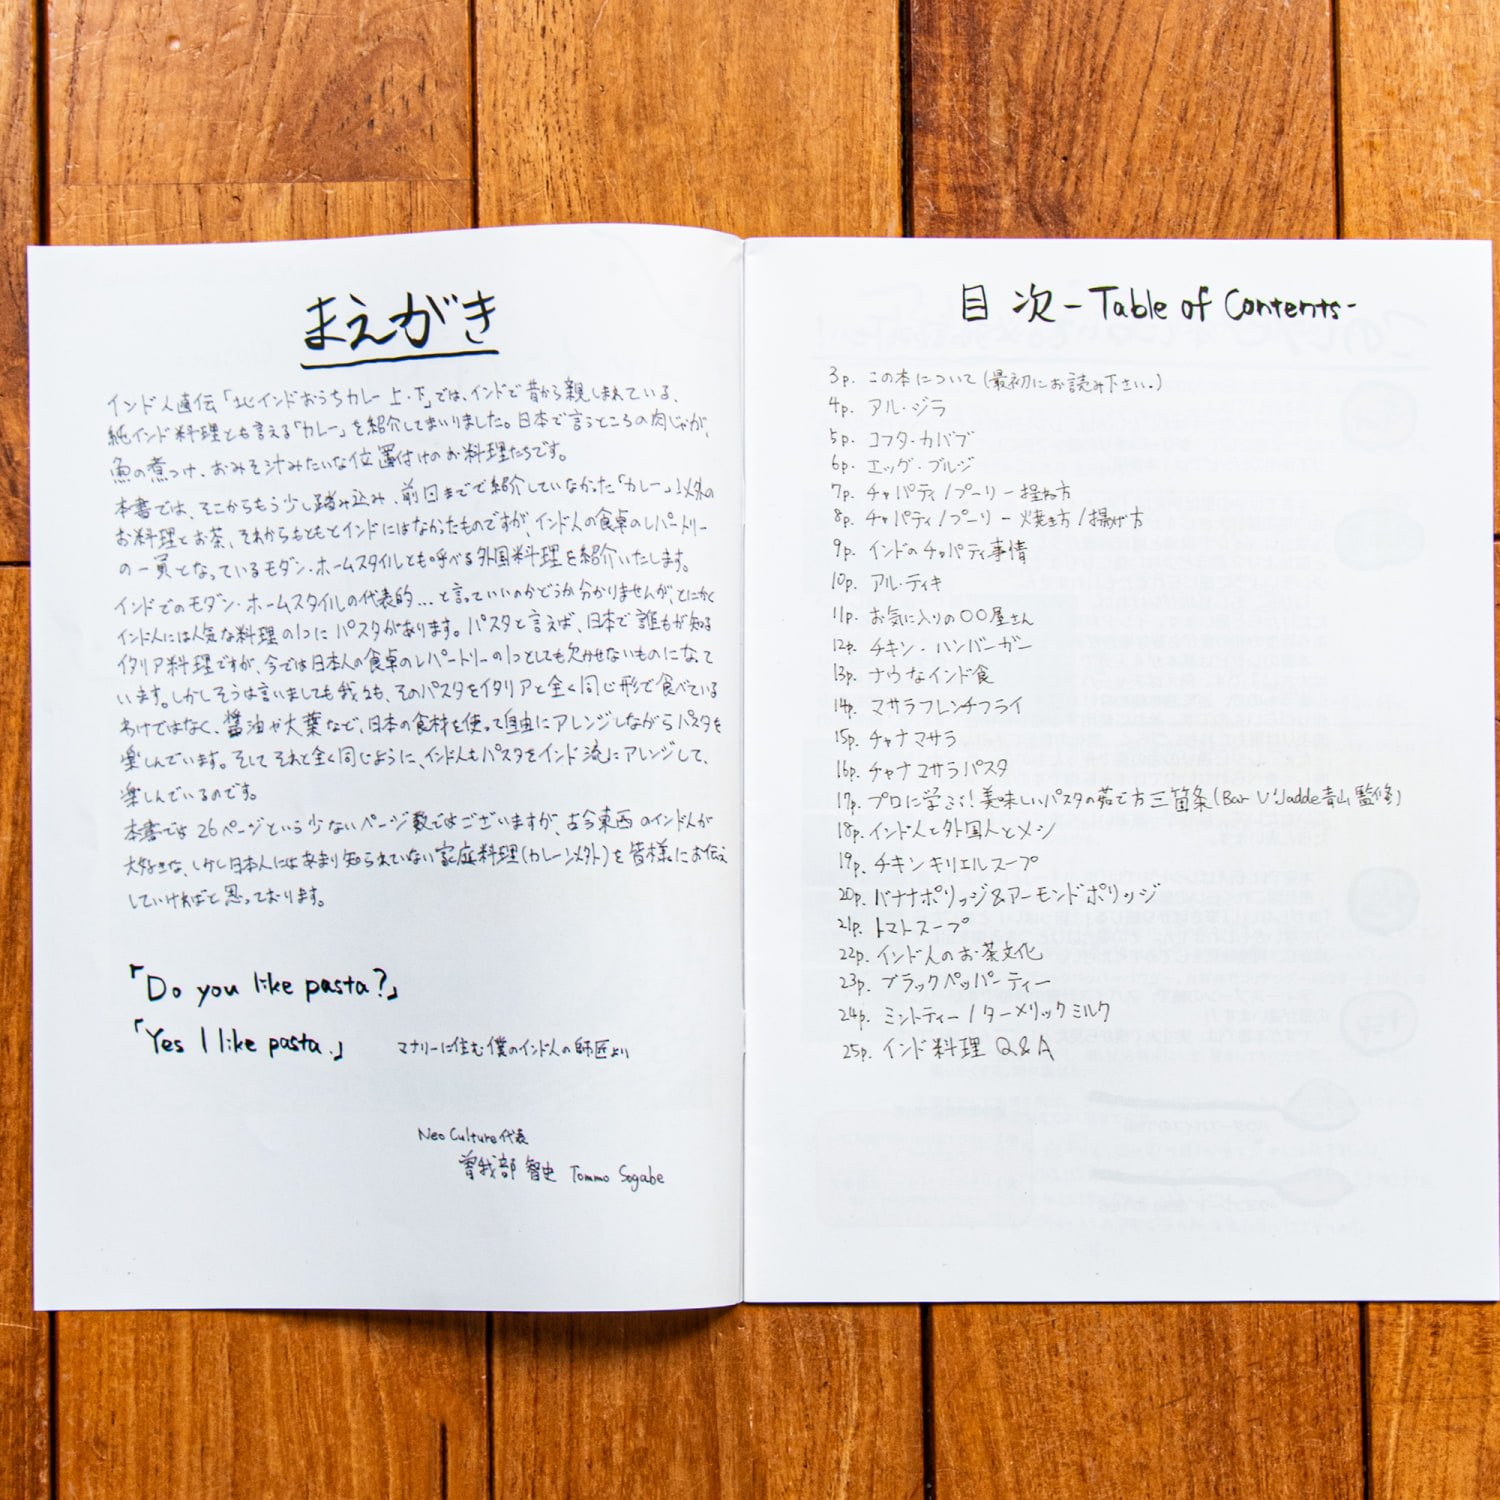 まえがき
インド人直伝「北インドおうちカレー 上・下」では、インドで昔から親しまれている、
純インド料理とも言える「カレー」を紹介してまいりました。日本で言うところの肉じゃが、
魚の煮つけ、おみそ汁みたいな位置付けのお料理たちです。
本書では、そこからもう少し踏み込み、前回までで紹介していなかった「カレー」以外の
お料理とお茶、それからもともとインドにはなかったものですが、インド人の食卓のレパートリー
の一員となっているモダン・ホームスタイルとも呼べる外国料理を紹介いたします。
インドでのモダン・ホームスタイルの代表的...と言っていいのかどうか分かりませんが、とにかく
インド人には人気な料理の1つにパスタがあります。パスタと言えば、日本で誰もが知る
イタリア料理ですが、今では日本人の食卓のレパートリーの1つとしても欠かせないものになって
います。しかしそうは言いましても我々も、そのパスタをイタリアと全く同じ形で食べている
わけではなく、醤油や大葉など、日本の食材を使って自由にアレンジしながらパスタを
楽しんでいます。そしてそれと全く同じように、インド人もパスタをインド流にアレンジして、
楽しんでいるのです。
本書では26ページという少ないページ数ではございますが、古今東西のインド人が
大好きな、しかし日本人にはあまり知られていない家庭料理(カレー以外)を皆様にお伝え
していければと思っております。
「Do you like pasta?」
「Yes I like pasta.」 マナリーに住む僕のインド人の師匠より
Neo Culture代表
曽我部 智史 Tommo Sogabe
目 次 -Table of Contents-
3p. この本について(最初にお読み下さい。)
4p. アル・ジラ
5p. コフタ・カバブ
6p. エッグ・ブルジ
7p. チャパティ/プーリー 捏ね方
8p. チャパティ/プーリー 焼き方/揚げ方
9p. インドのチャパティ事情
10p. アル・ティキ
11p. お気に入りの〇〇屋さん
12p. チキン・ハンバーガー
13p. ナウなインド食
14p. マサラフレンチフライ
15p. チャナマサラ
16p. チャナマサラパスタ
17p. プロに学ぶ!美味しいパスタの茹で方三箇条(Bar V'Jadde青山監修)
18p. インド人と外国人とメシ
19p. チキンキリエルスープ
20p. バナナポリッジ&アーモンドポリッジ
21p. トマトスープ
22p. インド人のお茶文化
23p. ブラックペッパーティー
24p. ミントティー/ターメリックミルク
25p. インド料理 Q&A